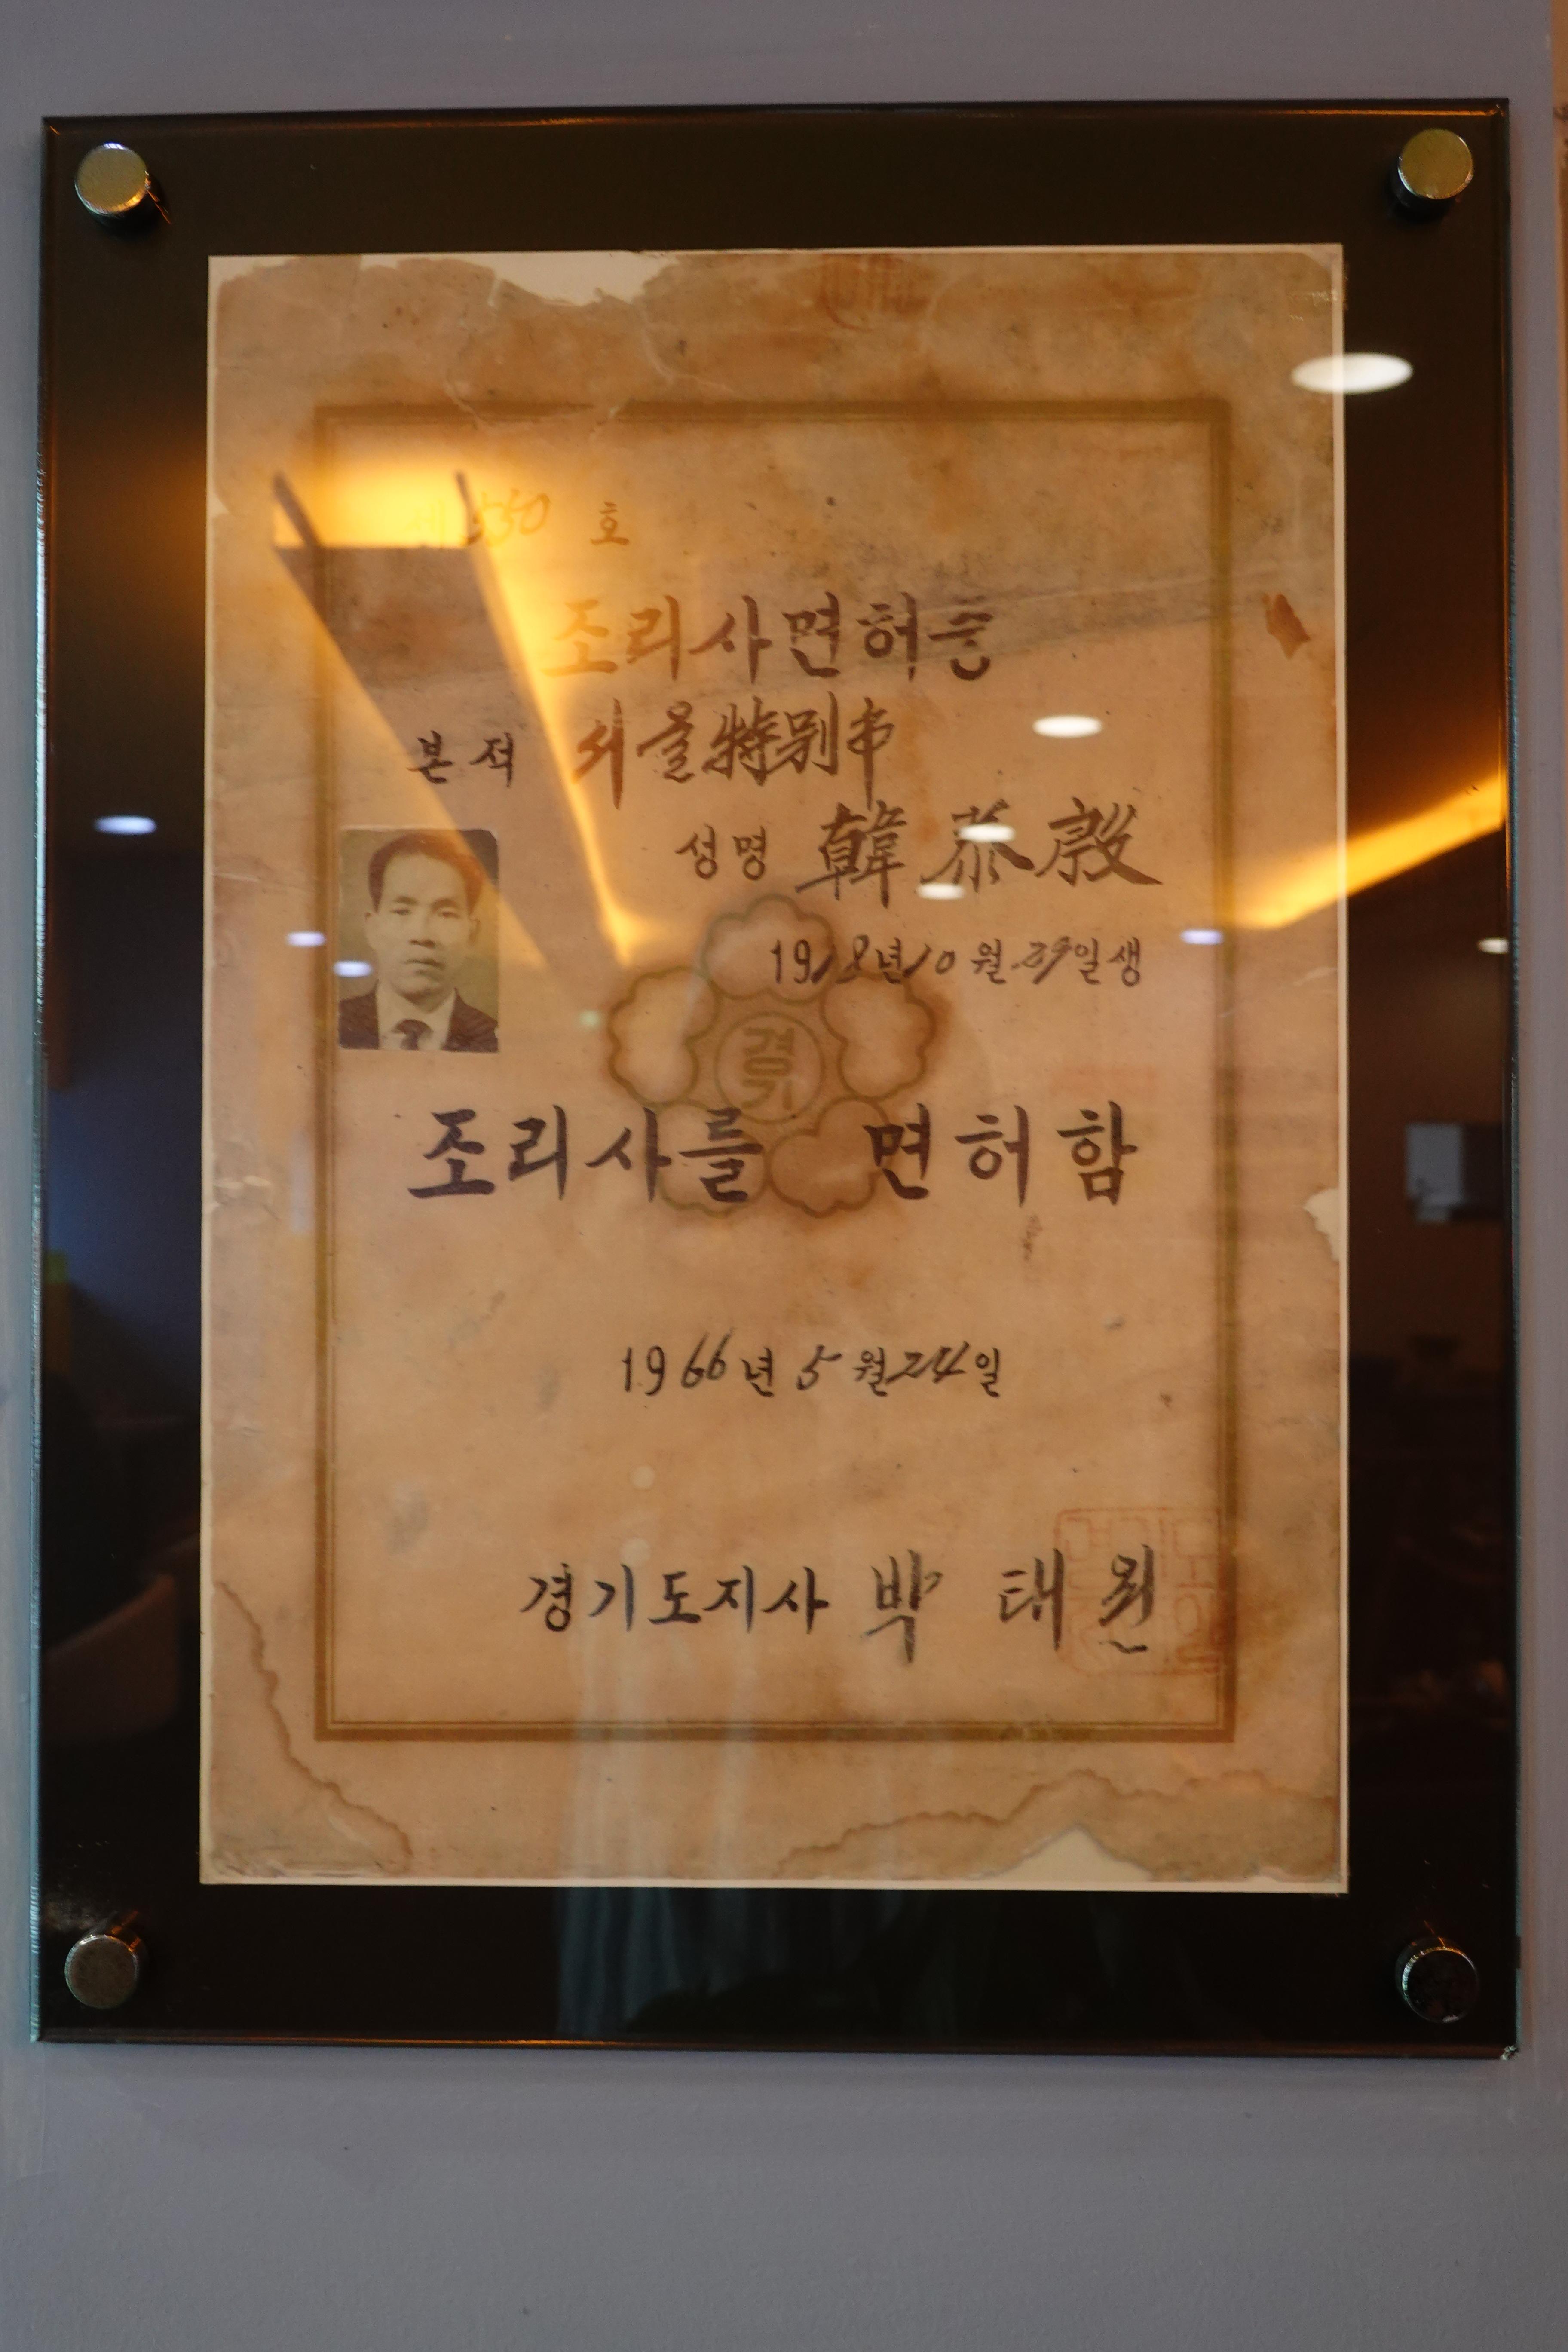 제 550 호
조리사면허증
본적 서울特別市
성명 韓恭殷
1918년 10월 29일생
경기
조리사를 면허함
1966년 5월 24일
경기도지사 박태원